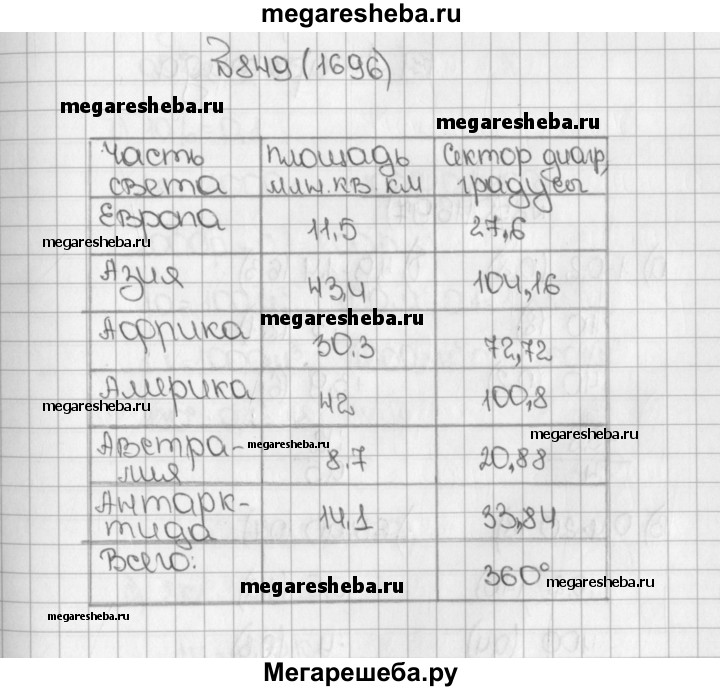 megaresheba.ru
В849 (1696)
megaresheba.ru
megaresheba.ru
Часть света площадь млн.кв км Сектор диагр, градусы
Европа 11,5 27,6
megaresheba.ru
Азия 43,4 104,16
megaresheba.ru
Африка 30.3 72,72
Америка 42 100,8
megaresheba.ru
megaresheba.ru
Австралия 8.7 20,88
megaresheba.ru
Антарк-тида 14.1 33,84
Всего: 360°
megaresheba.ru
megaresheba.ru
megaresheba.ru
Мегарешеба.ру